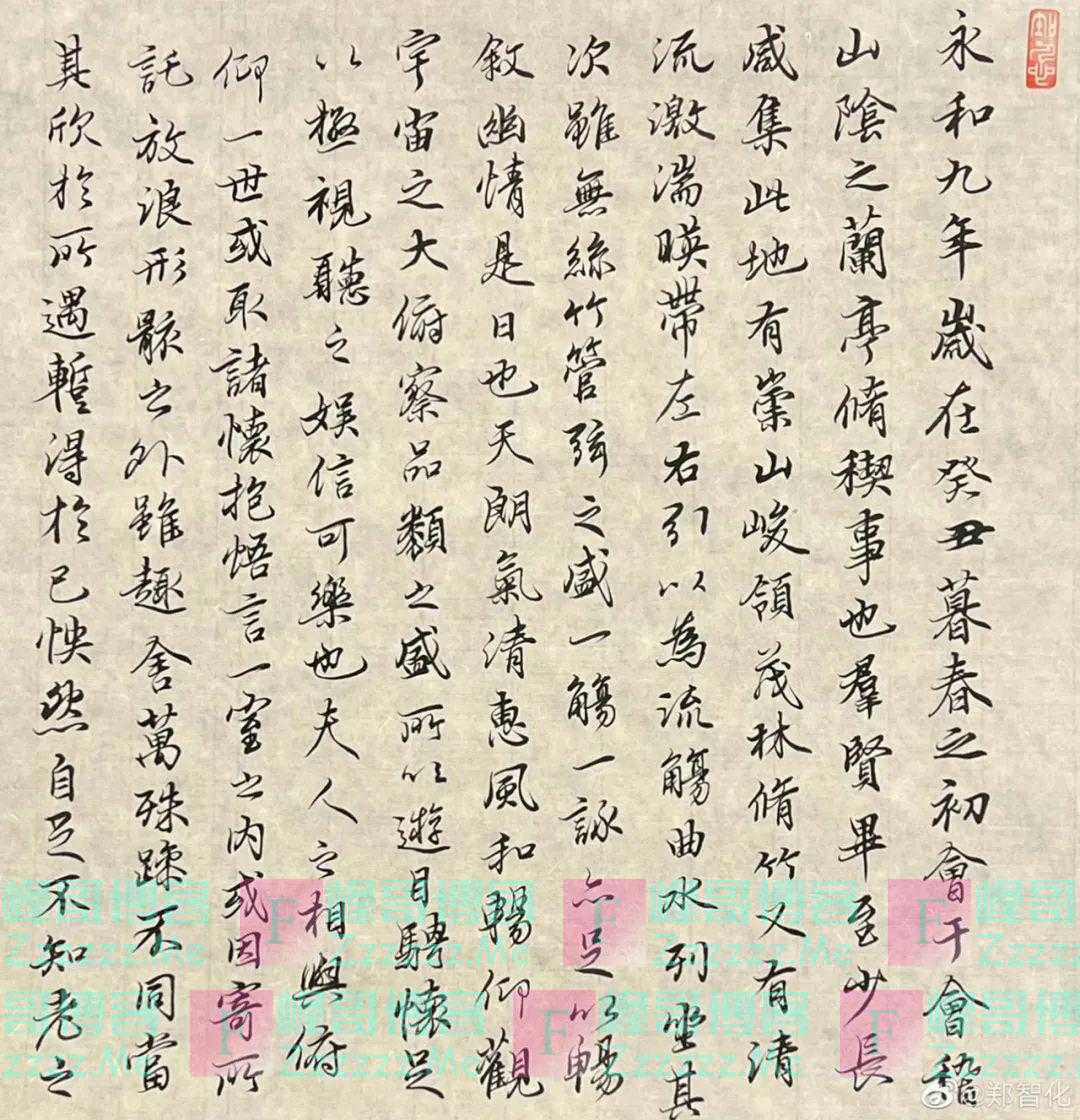 永和九年歲在癸丑暮春之初會于會稽
山陰之蘭亭脩禊事也羣賢畢至少長
咸集此地有崇山峻領茂林脩竹又有清
流激湍暎帶左右引以為流觴曲水列坐其
次雖無絲竹管弦之盛一觴一詠亦足以暢
敘幽情是日也天朗氣清惠風和暢仰觀
宇宙之大俯察品類之盛所以遊目騁懷足
以極視聽之娛信可樂也夫人之相與俯
仰一世或取諸懷抱悟言一室之內或因寄所
託放浪形骸之外雖趣舍萬殊躁不同當
其欣於所遇蹔得於己怏然自足不知老之
峰哥博客
Zzzzz.Me
@郑智化